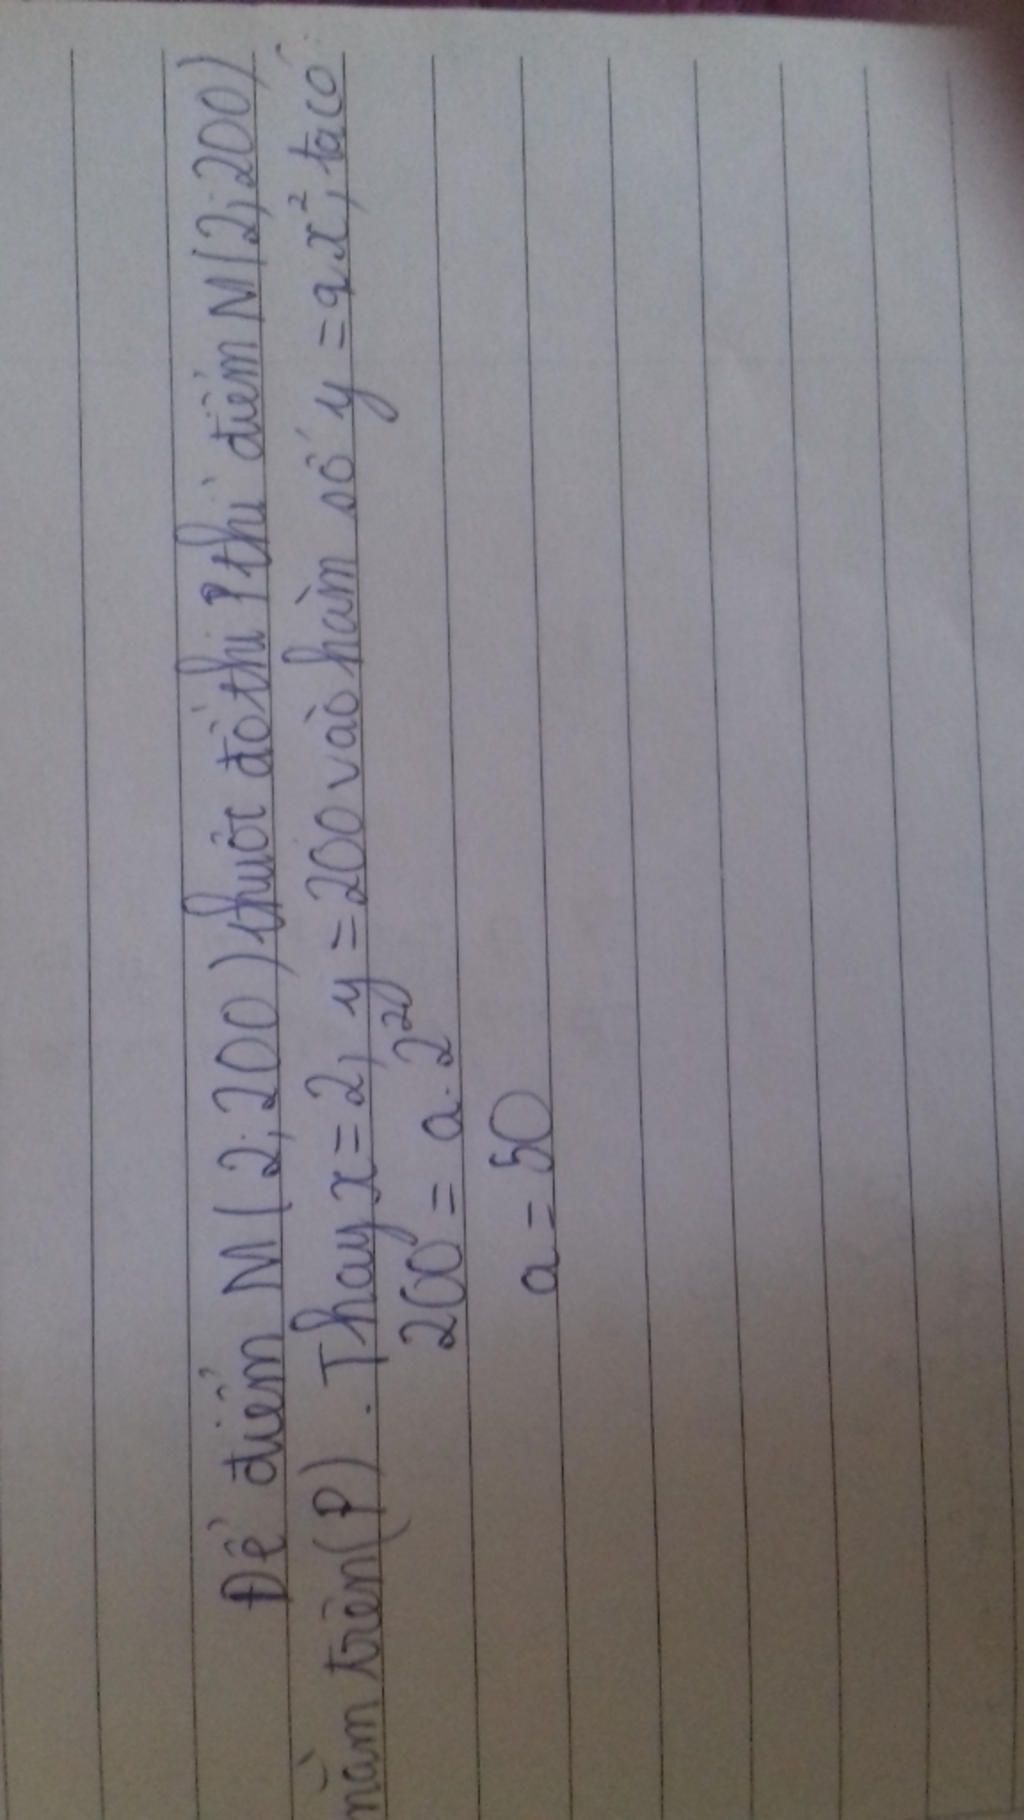 Để điểm M(2;200) thuộc đồ thị P thì điểm M(2;200)
nằm trên (P). Thay x=2, y=200 vào hàm số y=a.x², ta có:
200 = a. 2²
a = 50